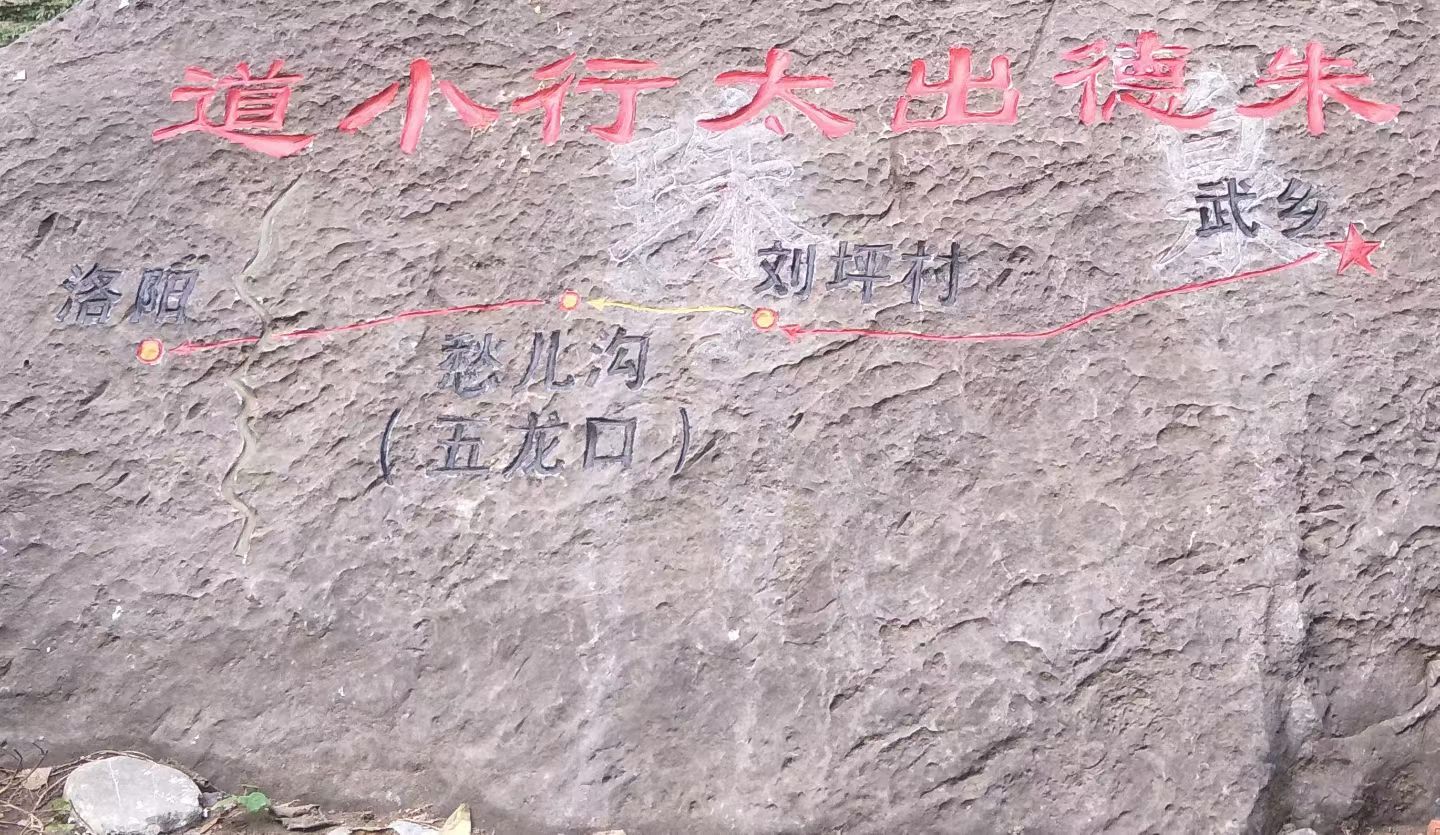 朱德出太行小道
武乡
刘坪村
愁儿沟
（五龙口）
洛阳